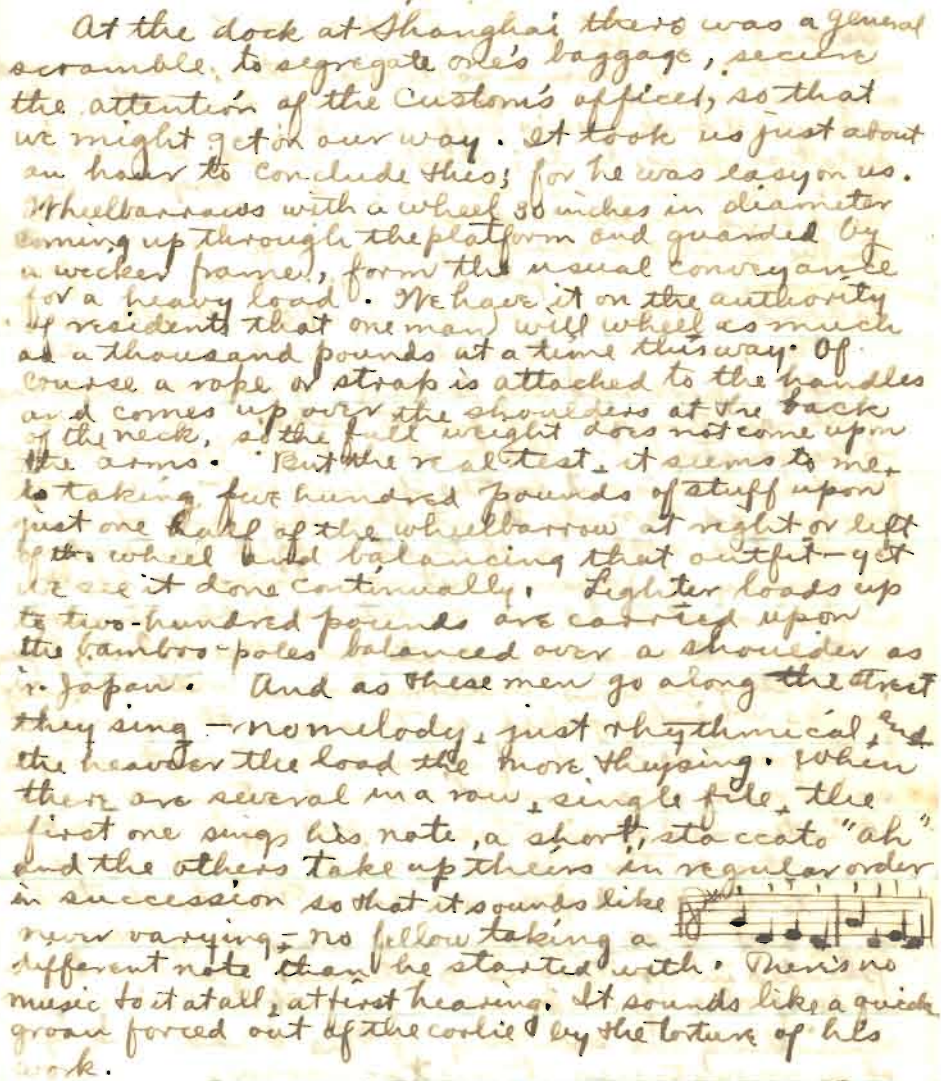 At the dock at Shanghai, there was a general
scramble, to segregate one's baggage, secure
the attention of the Custom's officer, so that
we might get on our way. It took us just about
an hour to conclude this; for he was easy on us.
Wheelbarrows with a wheel 30 inches in diameter
coming up through the platform and guarded by
a wicker frame, form the usual conveyance
for a heavy load. We have it on the authority
of residents that one man will wheel as much
as a thousand pounds at a time this way. Of
course a rope or strap is attached to the handles
and comes up over the shoulders at the back
of the neck, so the full weight does not come upon
the arms. But the real test, it seems to me,
is taking five hundred pounds of stuff upon
just one half of the wheelbarrow at right or left
of the wheel and balancing that outfit - yet
we see it done continually. Lighter loads up
to two-hundred pounds are carried upon
the bamboo-poles balanced over a shoulder as
in Japan. And as these men go along the street
they sing - no melody, just rhythmical, and
the heavier the load the more they sing. When
there are several in a row, single file, the
first one sings his note, a short, staccato "ah"
and the others take up theirs in regular order
in succession so that it sounds like
never varying, - no fellow taking a
different note than he started with. There's no
music to it at all, at first hearing. It sounds like a quick
groan forced out of the coolie by the torture of his
work.